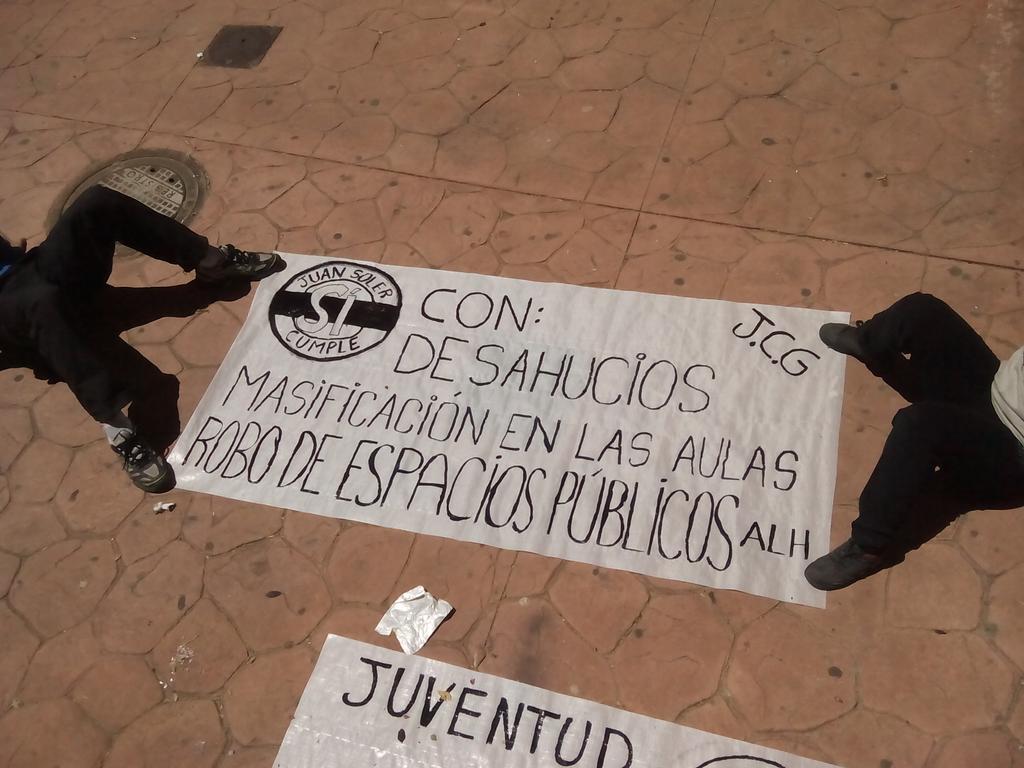 JUAN SOLER
SÍ
CUMPLE
CON:
J.C.G
DESAHUCIOS
MASIFICACIÓN EN LAS AULAS
ROBO DE ESPACIOS PÚBLICOS ALH
JUVENTUD